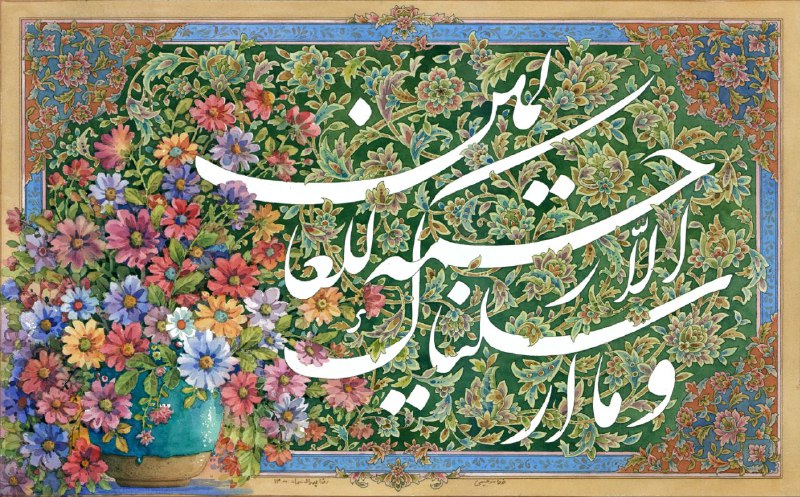 وما ارسلناك
الّا رحمة
للعالمين